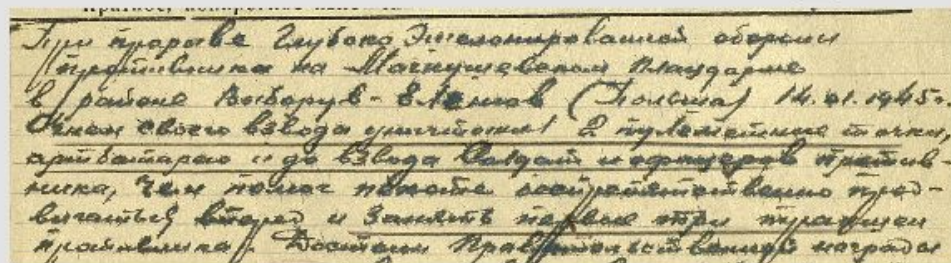 При прорыве глубоко эшелонированной обороны
противника на Магнушевском плацдарме
в районе Выборув - (Польша) 14.01.1945г
Огнем своего взвода уничтожил 2 пулеметные точки,
артбатарею и до взвода солдат и офицеров против-
ника, чем помог пехоте беспрепятственно прод-
вигаться вперед и занять первые три траншеи
противника. Достоин Правительственной награды